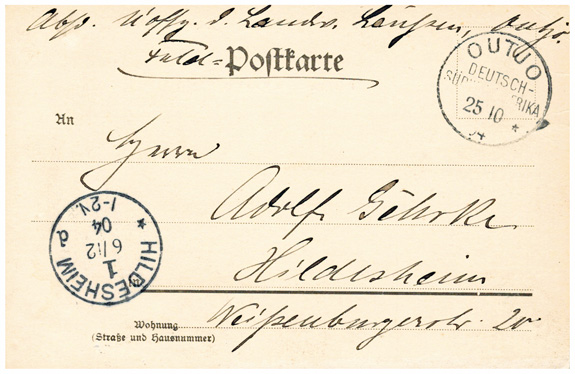 Abs. Uoffz. d. Landw. Laussen, Outjo.
Feld=Postkarte
OUTJO
DEUTSCH-
SÜDWESTAFRIKA
25 10
04
An
Herrn
Adolf Gehrke
Hildesheim
Weißenburgerstr. 20
Wohnung
(Straße und Hausnummer)
HILDESHEIM
1
d
6/12
04
1-2N.